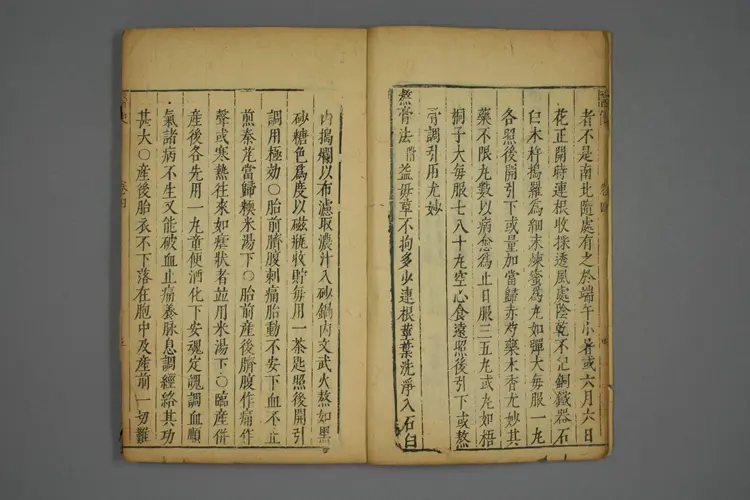 者不是南北隨處有之於端午小暑或六月六日
花正開時連根收採透風處陰乾不記銅鐵器石
臼木杵搗羅為細末煉蜜為丸如彈大每服一丸
各照後開引下或量加當歸赤芍藥木香尤妙其
藥不限丸數以病愈為止日服三五丸或丸如梧
桐子大每服七八十丸空心食遠照後引下或熬
膏調引用尤妙
熬膏法 益母草不拘多少連根莖葉洗淨入石臼
內搗爛以布濾取濃汁入砂鍋內文武火熬如黑
砂糖色為度以磁瓶收貯每用一茶匙照後開引
調用極効○胎前臍腹刺痛胎動不安下血不止
煎秦艽當歸糯米湯下○胎前產後臍腹作痛作
聲或寒熱往來如瘧狀者並用米湯下○臨產併
產後各先用一丸童便酒化下安魂定魄調血順
氣諸病不生又能破血止痛養脉息調經絡其功
甚大○產後胎衣不下落在胞中及產前一切難